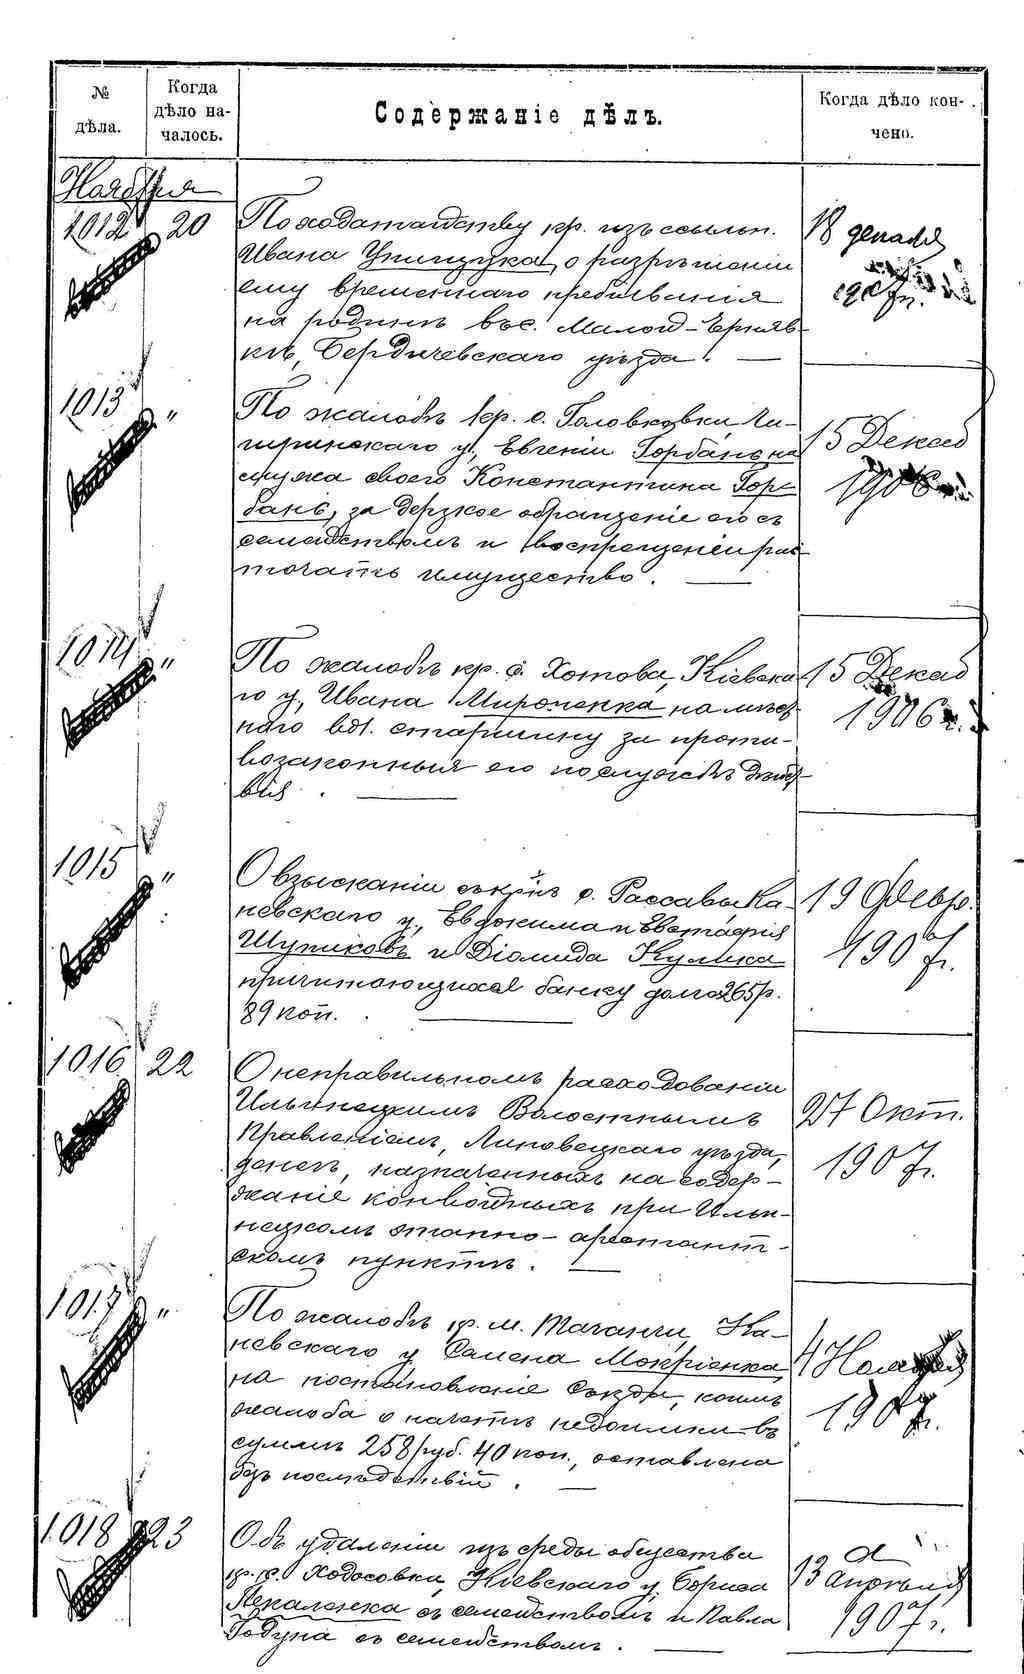 № дѣла.
Когда дѣло началось.
Содержаніе дѣлъ.
Когда дѣло кончено.
Ноября
1012 20
По ходатайству кр. изъ ссыльн.
Ивана о разрѣшеніи
ему временнаго пребыванія
на родинѣ въ с. Малой-Черняв-
кѣ, Бердичевскаго уѣзда. —
18 декабря
190 г.
1013 "
По жалобѣ кр. с. Головковки, Чи-
гиринскаго у., Евгеніи Горбань на
мужа своего Константина Гор-
бань, за дерзкое обращеніе его съ
семействомъ и воспрещеніи рас-
точать имущество. —
15 Декаб
1906
1014 "
По жалобѣ кр. с. Хотова, Кіевска-
го у., Ивана Мироненка на мѣст-
наго вол. старшину за проти-
возаконныя его по службѣ дѣйст-
вія. —
15 Декаб
1906 г.
1015 "
О взысканіи съ кр. с. Рассавы, Ка-
невскаго у., Евдокима и Евстафія
Шупиковъ и Діомида Кулика
причитающихся банку долга 265 р.
89 коп. —
19 Февр.
190 г.
1016 22
О неправильномъ расходованіи
Ильинецкимъ Волостнымъ
Правленіемъ, Липовецкаго уѣзда,
денегъ, назначенныхъ на содер-
жаніе конвойныхъ при Ильи-
нецкомъ этапно-арестант-
скомъ пунктѣ. —
27 Окт.
1907 г.
1017 "
По жалобѣ кр. м. Таганчи, Ка-
невскаго у. Семена Мокріенка,
на постановленіе Съѣзда, коимъ
жалоба о начетѣ недоимки въ
суммѣ 258 руб. 40 коп., оставлена
безъ послѣдствій. —
4 Ноября
1907 г.
1018 23
Объ удаленіи изъ среды общества
кр. с. Ходосовки, Кіевскаго у. Бориса
съ семействомъ и Павла
Годуна съ семействомъ. —
13 апрѣля
1907 г.